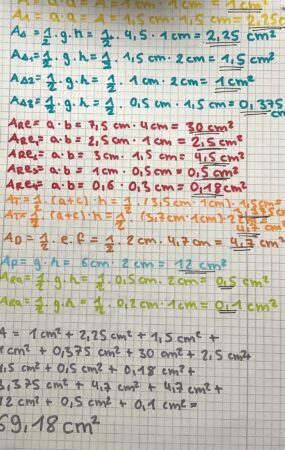 A = a · a = A = 1 cm · 1 cm = 1 cm²
A = a · a = A = 1,5 cm · 1,5 cm = 2,25 c
A△ = 1/2 · g · h = 1/2 · 4,5 · 1 cm = 2,25 cm²
A△₁ = 1/2 · g · h = 1/2 · 1,5 cm · 2 cm = 1,5 cm²
A△₂ = 1/2 · g · h = 1/2 · 1 cm · 2 cm = 1 cm²
A△₃ = 1/2 · g · h = 1/2 · 0,5 cm · 1,5 cm = 0,375 cm
ARE = a · b = 7,5 cm · 4 cm = 30 cm²
ARE₁ = a · b = 2,5 cm · 1 cm = 2,5 cm²
ARE₂ = a · b = 3 cm · 1,5 cm = 4,5 cm²
ARE₃ = a · b = 1 cm · 0,5 cm = 0,5 cm²
ARE₄ = a · b = 0,6 · 0,3 cm = 0,18 cm²
AT = 1/2 · (a+c) · h = 1/2 · (3,5 cm · 1 cm) · 1,5 cm =
AT = 1/2 · (a+c) · h = 1/2 · (3,7 cm · 1 cm)
AD = 1/2 · e · f = 1/2 · 2 cm · 4,7 cm = 4,7 cm²
AP = g · h = 6 cm · 2 cm = 12 cm²
ARA = 1/2 · g · h = 1/2 · 0,5 cm · 2 cm = 0,5 cm²
ARA = 1/2 · g · h = 1/2 · 0,2 cm · 1 cm = 0,1 cm²
A = 1 cm² + 2,25 cm² + 1,5 cm² +
1 cm² + 0,375 cm² + 30 cm² + 2,5 cm² +
,5 cm² + 0,5 cm² + 0,18 cm² +
3,375 cm² + 4,7 cm² + 4,7 cm² +
12 cm² + 0,5 cm² + 0,1 cm² =
69,18 cm²